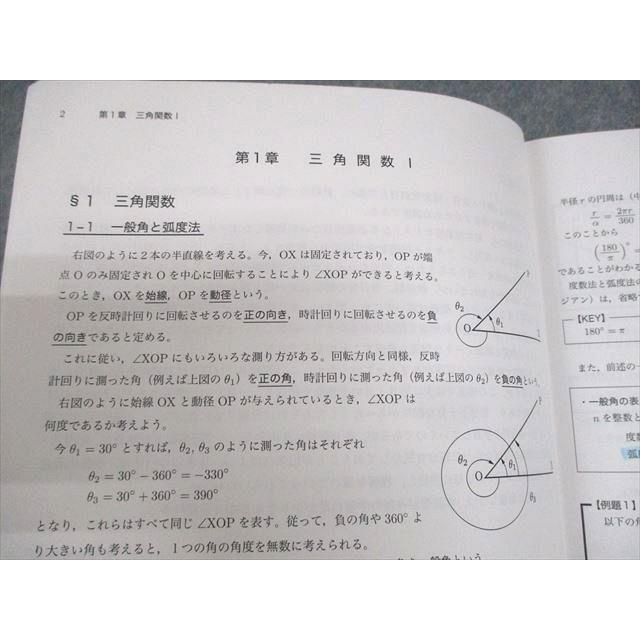 2 第1章 三角関数 I
第1章 三角関数 I
§1 三角関数
1-1 一般角と弧度法
右図のように2本の半直線を考える。今，OX は固定されており，OP が端
点 O のみ固定され O を中心に回転することにより ∠XOP ができると考える。
このとき，OX を始線，OP を動径という。
OP を反時計回りに回転させるのを正の向き，時計回りに回転させるのを負
の向きであると定める。
これに従い，∠XOP にもいろいろな測り方がある。回転方向と同様，反時
計回りに測った角（例えば上図の θ₁）を正の角，時計回りに測った角（例えば上図の θ₂）を負の角という。
右図のように始線 OX と動径 OP が与えられているとき，∠XOP は
何度であるか考えよう。
今 θ₁ = 30° とすれば，θ₂, θ₃ のように測った角はそれぞれ
θ₂ = 30° − 360° = −330°
θ₃ = 30° + 360° = 390°
となり，これらはすべて同じ ∠XOP を表す。従って，負の角や 360° よ
り大きい角も考えると，1つの角の角度を無数に考えられる。
一般角という
P
θ₂
θ₁
O
P
θ₂
O
θ₁
θ₃
半径 r の円周は（中
r/α = 2πr/360
このことから
(180/π)° =
であることがわか
度数法と弧度法の
ジアン）は，省略
【KEY】
180° = π
また，前述の一
・一般角の表
n を整数と
度数
弧
【例題1】
以下の角